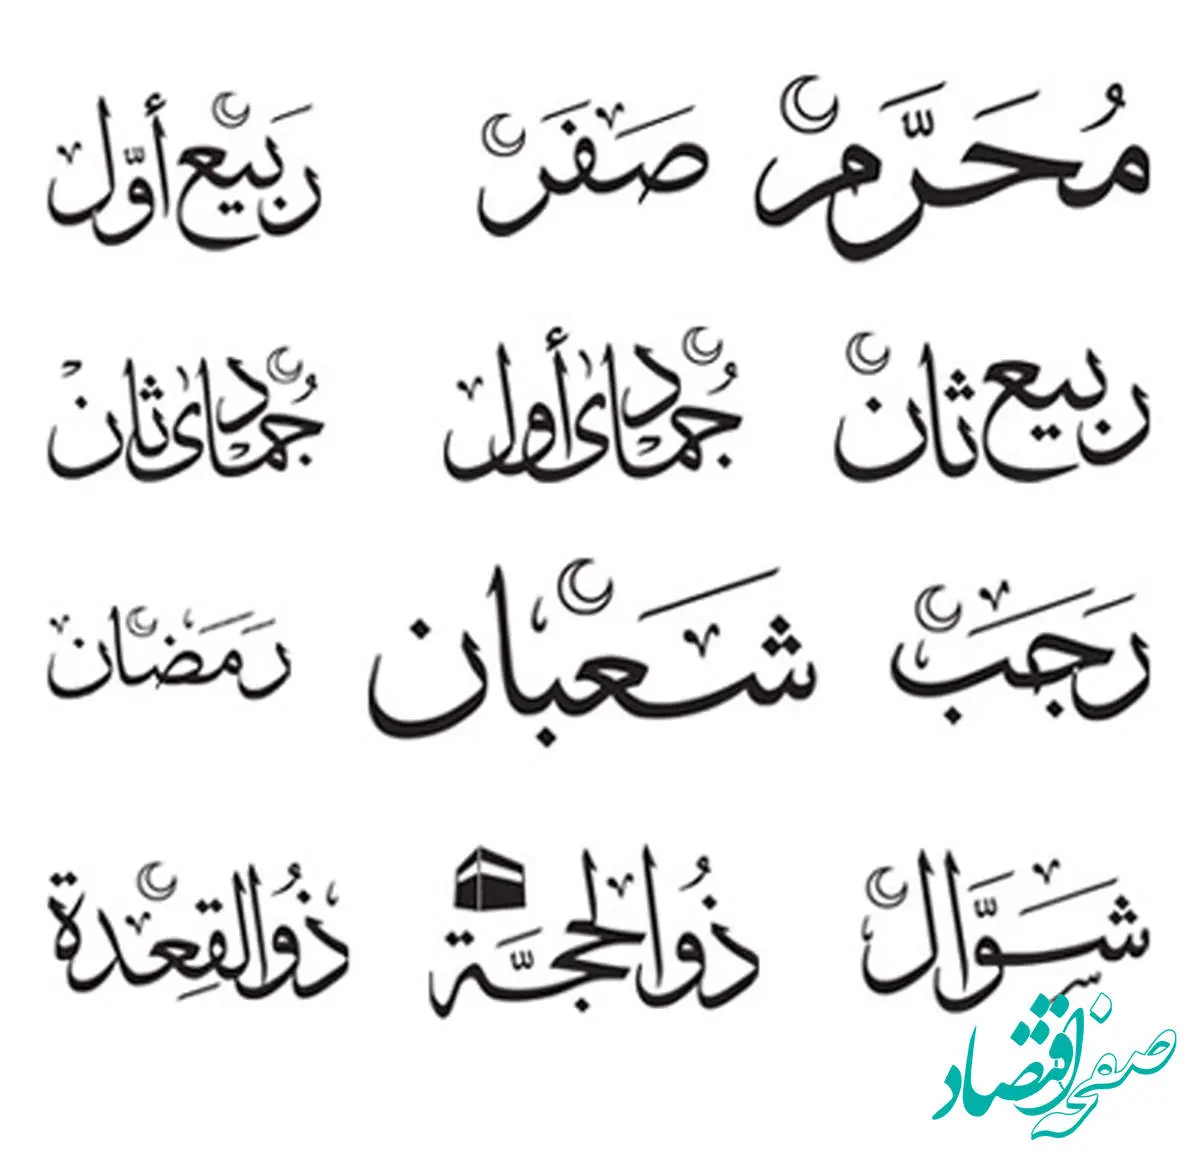 مُحَرَّم صَفَر رَبيع أوَّل
ربيع ثان جُمادى أول جُمادى ثان
رَجَب شَعبان رَمَضان
شَوَّال ذُوالحجَّة ذُوالقِعْدة
صفحه اقتصاد